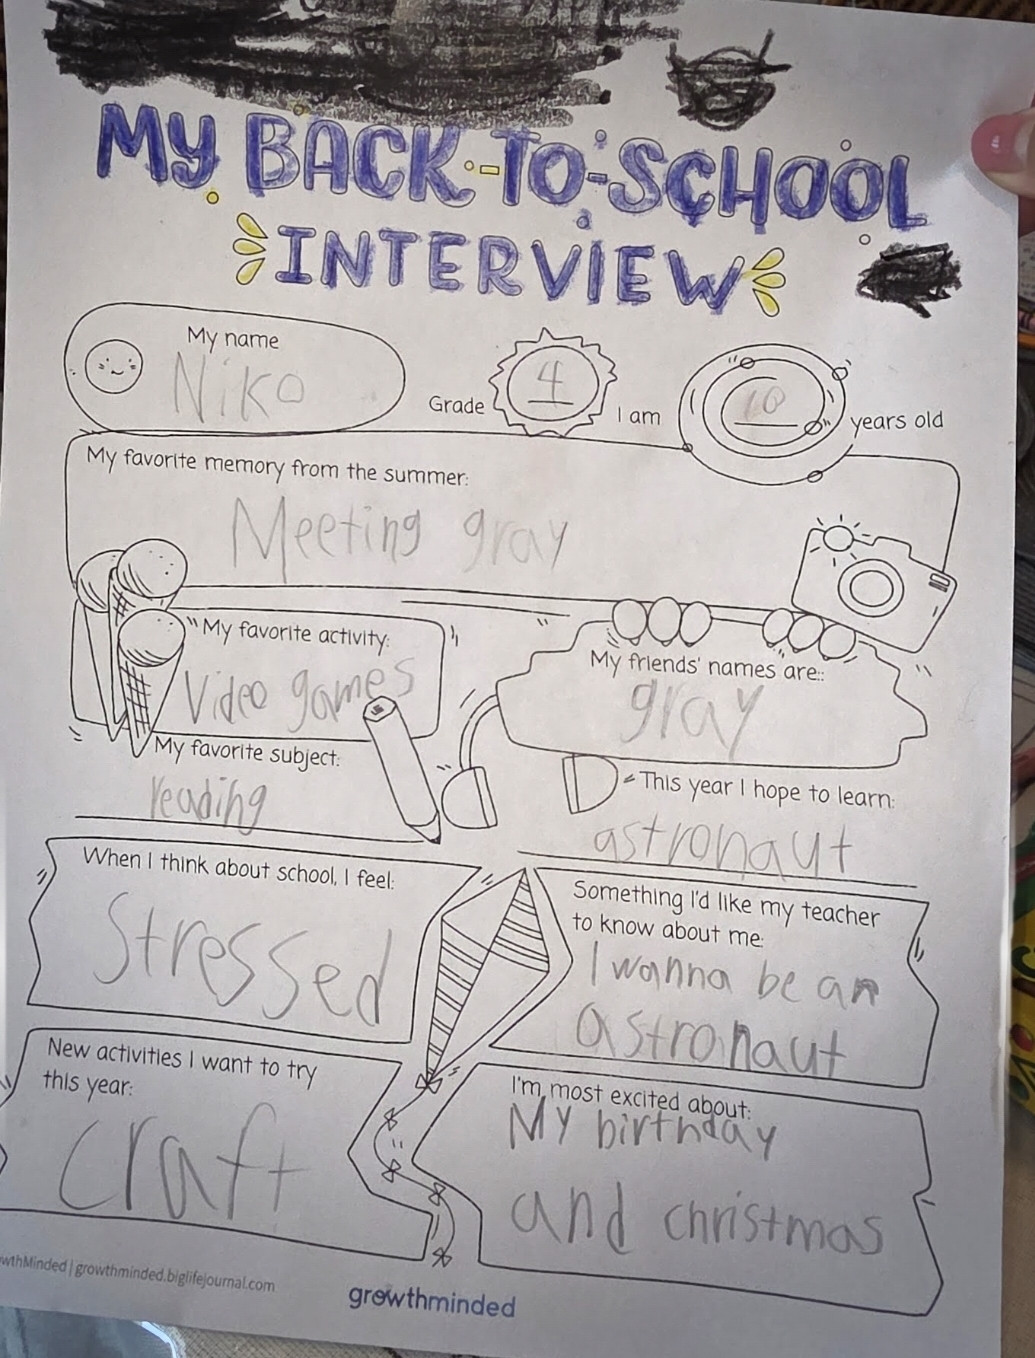 MY BACK-TO-SCHOOL
INTERVIEW
My name
Niko
Grade 4 I am 10 years old
My favorite memory from the summer:
Meeting gray
My favorite activity:
Video games
My friends' names are::
gray
My favorite subject:
reading
This year I hope to learn:
astronaut
When I think about school, I feel:
Stressed
Something I'd like my teacher
to know about me:
I wanna be an
astronaut
New activities I want to try
this year:
craft
I'm most excited about:
My birthday
and christmas
wthMinded | growthminded.biglifejournal.com
growthminded